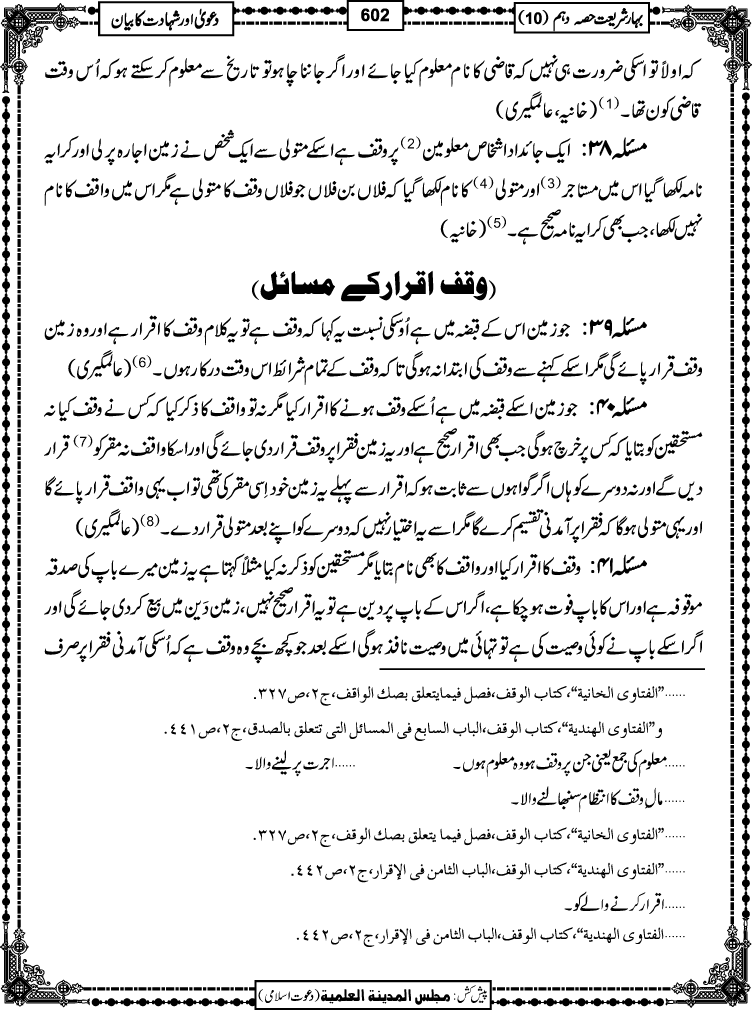 بہارِ شریعت حصہ دہم (10)
602
دعویٰ اور شہادت کا بیان
کہ اولاً تو اسکی ضرورت ہی نہیں کہ قاضی کا نام معلوم کیا جائے اور اگر جاننا چاہو تو تاریخ سے معلوم کر سکتے ہو کہ اُس وقت
قاضی کون تھا۔(1) (خانیہ، عالمگیری)
مسئلہ ۳۸: ایک جائداد اشخاص معلومین(2) پر وقف ہے اسکے متولی سے ایک شخص نے زمین اجارہ پر لی اور کرایہ
نامہ لکھا گیا اس میں مستاجر(3) اور متولی(4) کا نام لکھا گیا کہ فلاں بن فلاں جو فلاں وقف کا متولی ہے مگر اس میں واقف کا نام
نہیں لکھا، جب بھی کرایہ نامہ صحیح ہے۔(5) (خانیہ)
(وقف اقرار کے مسائل)
مسئلہ ۳۹: جو زمین اس کے قبضہ میں ہے اُوسکی نسبت یہ کہا کہ وقف ہے تو یہ کلام وقف کا اقرار ہے اور وہ زمین
وقف قرار پائے گی مگر اسکے کہنے سے وقف کی ابتدا نہ ہوگی تاکہ وقف کے تمام شرائط اس وقت درکار ہوں۔(6) (عالمگیری)
مسئلہ ۴۰: جو زمین اسکے قبضہ میں ہے اُسکے وقف ہونے کا اقرار کیا مگر نہ تو واقف کا ذکر کیا کہ کس نے وقف کیا نہ
مستحقین کو بتایا کہ کس پر خرچ ہوگی جب بھی اقرار صحیح ہے اور یہ زمین فقرا پر وقف قرار دی جائے گی اور اسکا واقف نہ مقر کو(7) قرار
دیں گے اور نہ دوسرے کو ہاں اگر گواہوں سے ثابت ہو کہ اقرار سے پہلے یہ زمین خود اِسی مقر کی تھی تو اب یہی واقف قرار پائے گا
اور یہی متولی ہوگا کہ فقرا پر آمدنی تقسیم کرے گا مگر اسے یہ اختیار نہیں کہ دوسرے کو اپنے بعد متولی قرار دے۔(8) (عالمگیری)
مسئلہ ۴۱: وقف کا اقرار کیا اور واقف کا بھی نام بتایا مگر مستحقین کو ذکر نہ کیا مثلاً کہتا ہے یہ زمین میرے باپ کی صدقہ
موقوفہ ہے اور اس کا باپ فوت ہو چکا ہے، اگر اس کے باپ پر دین ہے تو یہ اقرار صحیح نہیں، زمین دَین میں بیع کر دی جائے گی اور
اگر اسکے باپ نے کوئی وصیت کی ہے تو تہائی میں وصیت نافذ ہوگی اسکے بعد جو کچھ بچے وہ وقف ہے کہ اُسکی آمدنی فقرا پر صرف
......”الفتاوى الخانية“، كتاب الوقف، فصل فيمايتعلق بصك الواقف، ج۲، ص۳۲۷.
و”الفتاوى الهندية“، كتاب الوقف، الباب السابع فى المسائل التى تتعلق بالصدق، ج۲، ص۴۴۱.
......معلوم کی جمع یعنی جن پر وقف ہو وہ معلوم ہوں۔ ......اجرت پر لینے والا۔
......مالِ وقف کا انتظام سنبھالنے والا۔
......”الفتاوى الخانية“، كتاب الوقف، فصل فيما يتعلق بصك الوقف، ج۲، ص۳۲۷.
......”الفتاوى الهندية“، كتاب الوقف، الباب الثامن فى الإقرار، ج۲، ص۴۴۲.
......اقرار کرنے والے کو۔
......الفتاوى الهندية“، كتاب الوقف، الباب الثامن فى الإقرار، ج۲، ص۴۴۲.
پیش کش: مجلس المدینۃ العلمیۃ (دعوت اسلامی)